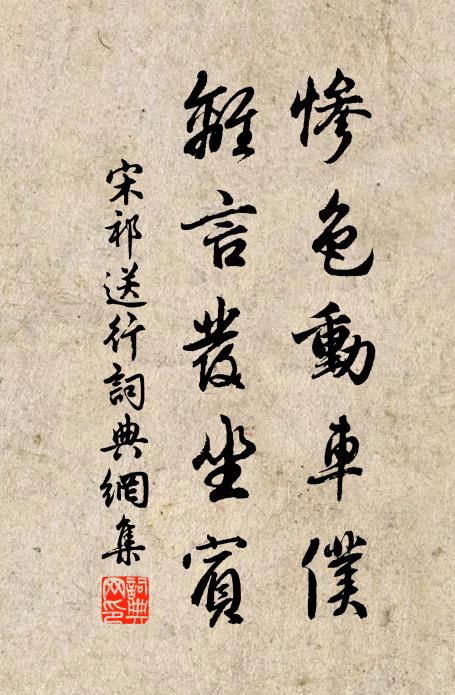 慘色動車僕
離言發坐賓
宋祁送行詞典網集
詞典網印